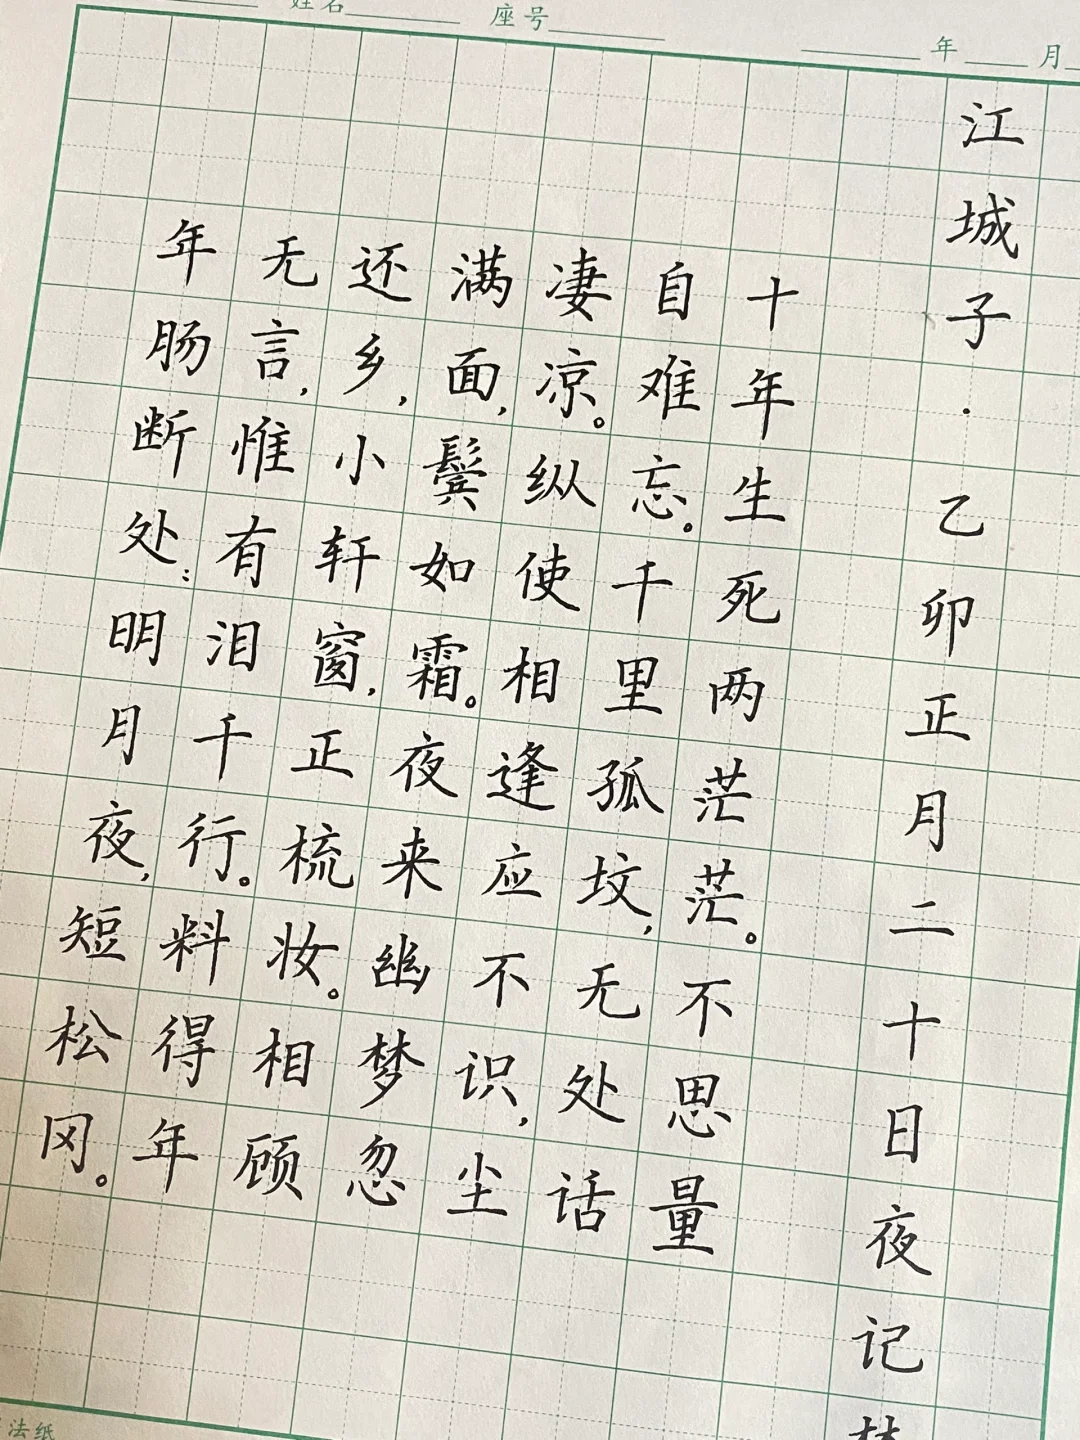 座号
年 月
江城子·乙卯正月二十日夜记
十年生死两茫茫。不思量
自难忘。千里孤坟，无处话
凄凉。纵使相逢应不识，尘
满面，鬓如霜。夜来幽梦忽
还乡，小轩窗，正梳妆。相顾
无言，惟有泪千行。料得年
年肠断处：明月夜，短松冈。
法纸